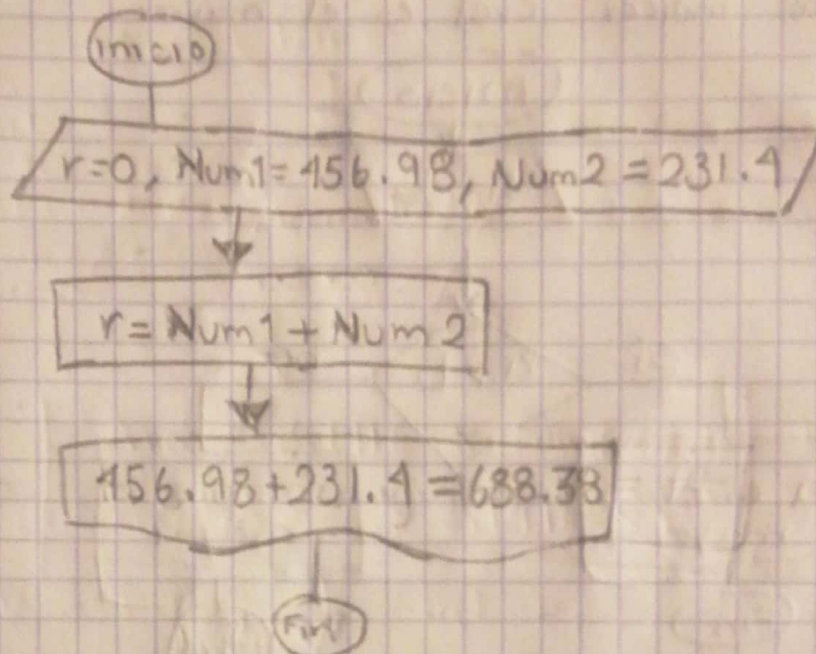 inicio
r=0, Num1=456.98, Num2=231.4
r= Num1 + Num2
456.98+231.4=688.38
Fin